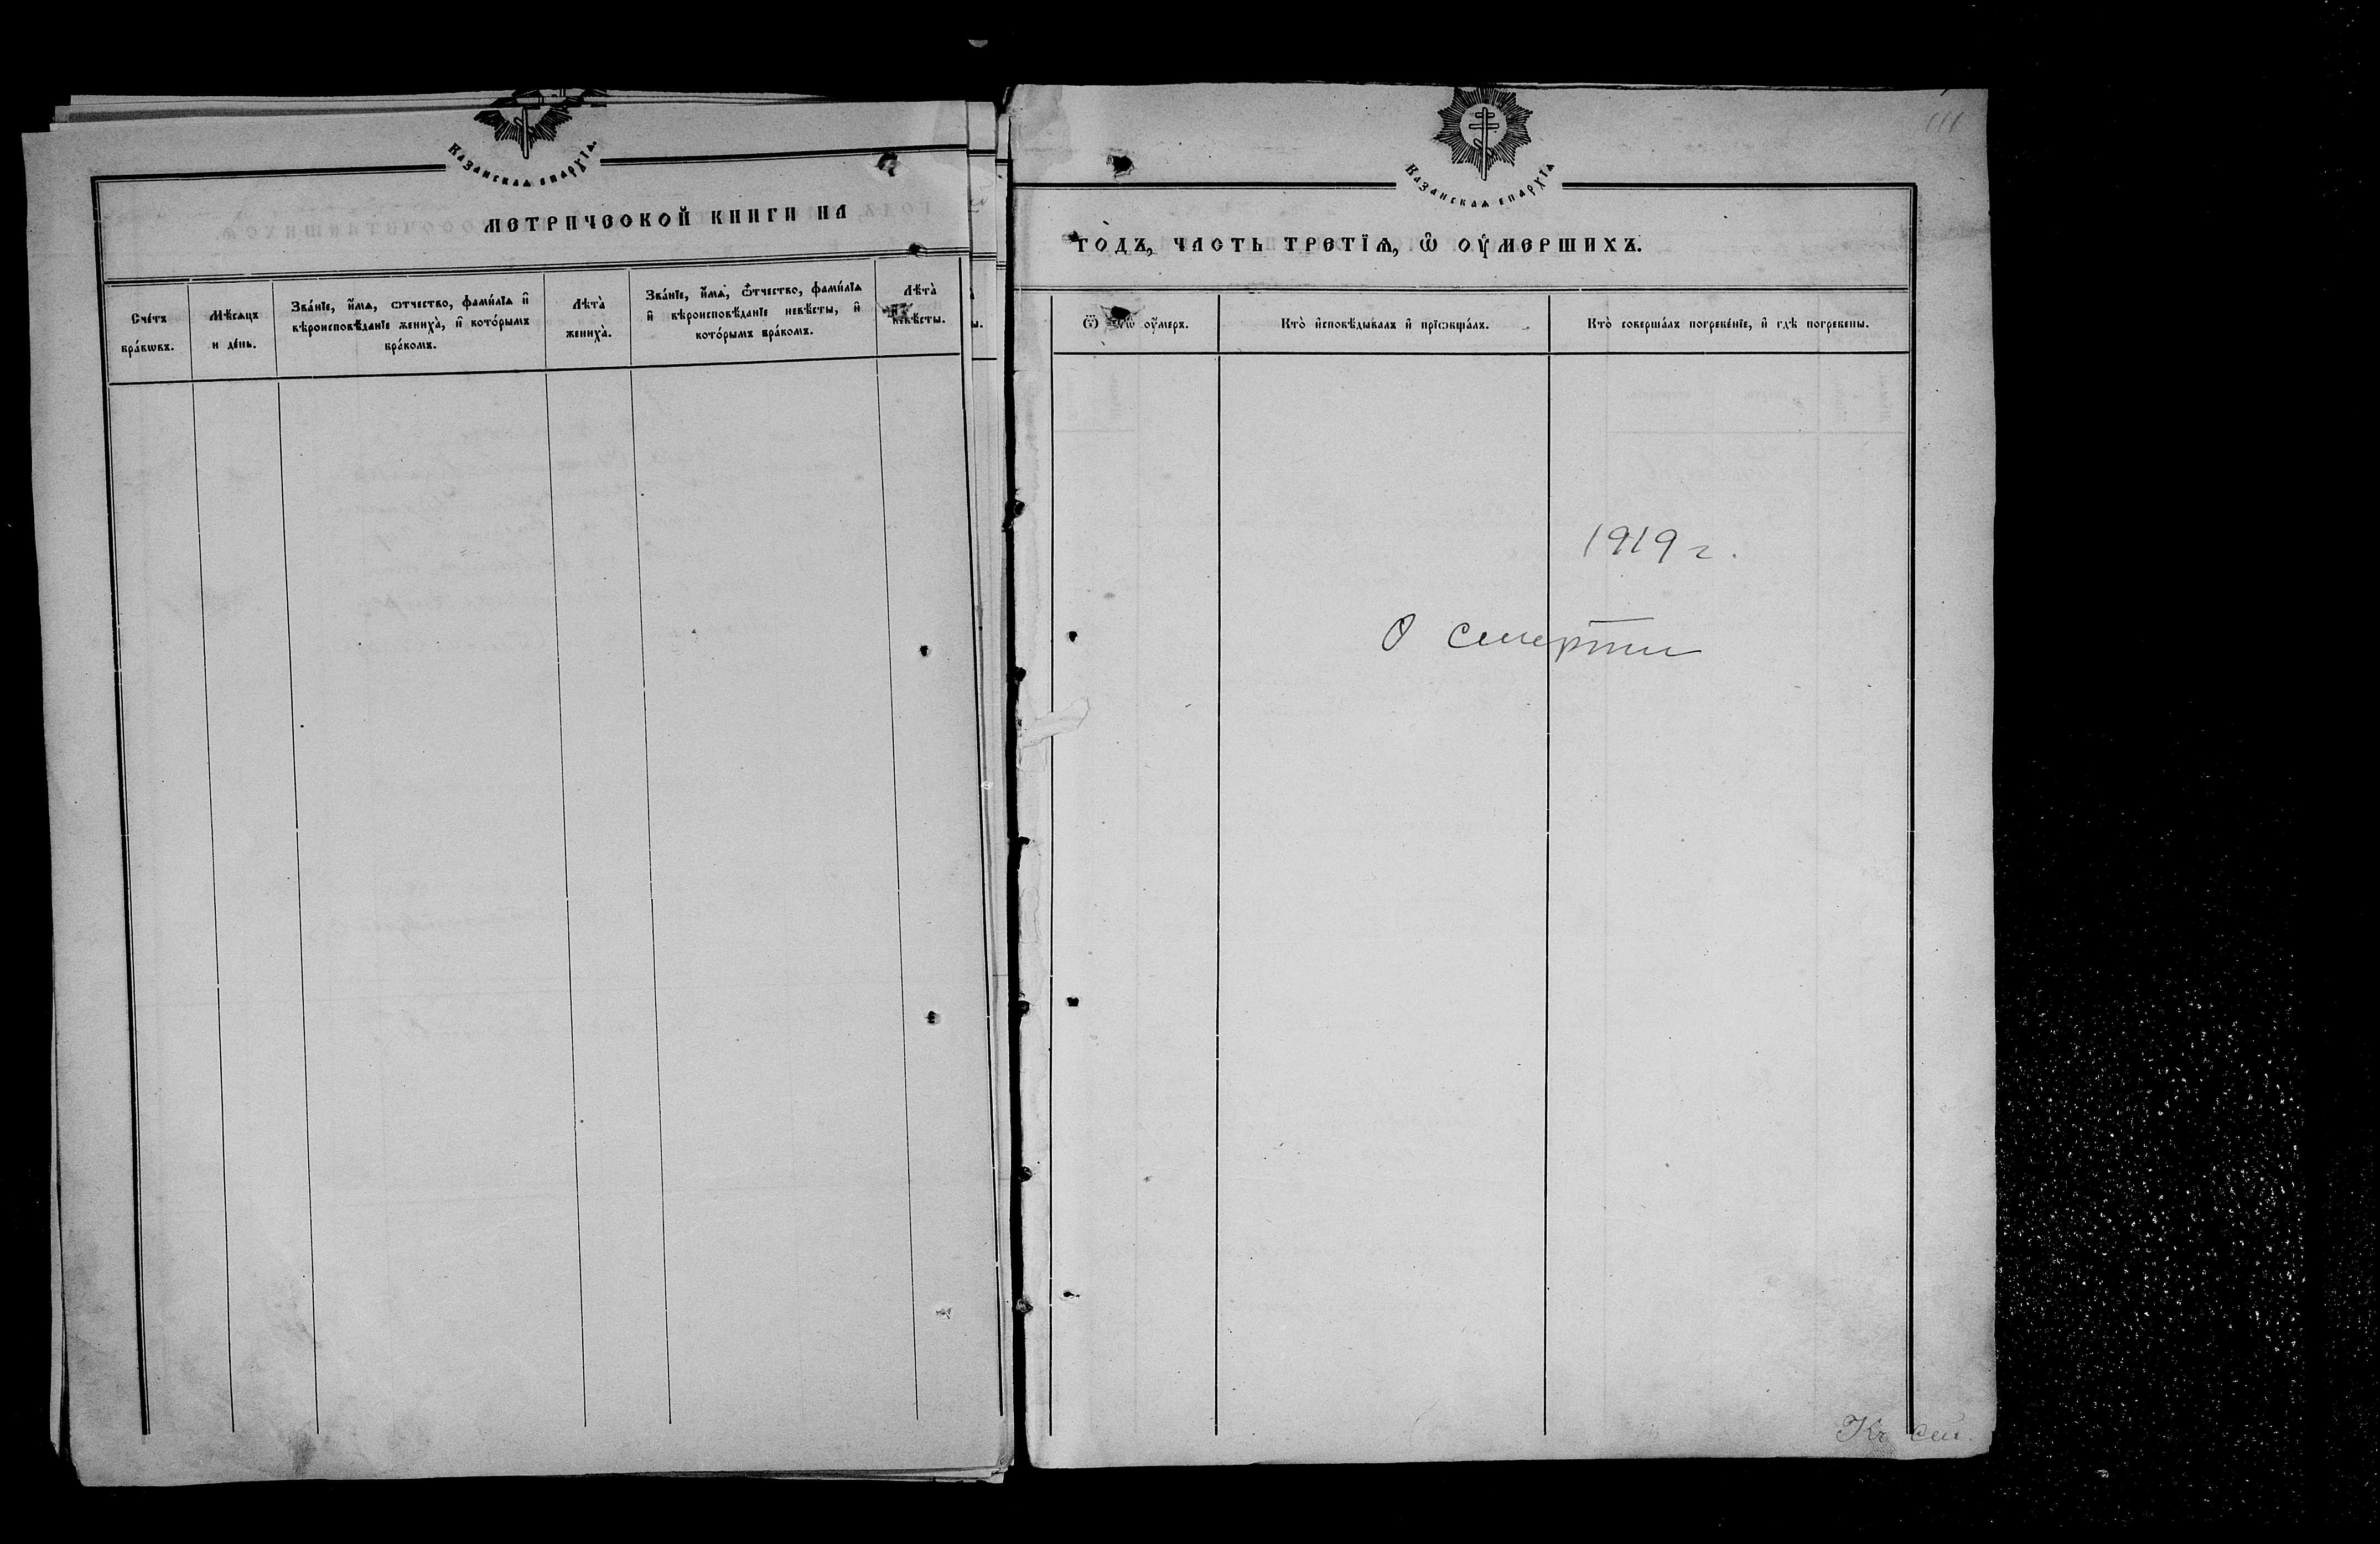 Казанская епархїѧ.
МЕТРИЧЕСКОЙ КНИГИ НА
Сче́тъ бра́кѡвъ.
Мѣ́сѧцъ и де́нь.
Зва́нїе, и҆́мѧ, ѻ҆тчество, фами́лїѧ и҆ вѣроисповѣ́данїе жениха̀, и҆ кото́рымъ бра́комъ.
Лѣта̀ жениха̀.
Зва́нїе, и҆́мѧ, ѻ҆́тчество, фами́лїѧ и҆ вѣроисповѣ́данїе невѣ́сты, и҆ кото́рымъ бра́комъ.
Лѣ́та̀ невѣ́сты.
Казанская епархїѧ
ГО́ДЪ, ЧАСТЬ ТРЕТЇѦ, Ѽ ОУ҆́МЕРШИХЪ.
Ѿ оу҆́меръ.
Кто̀ и҆сповѣ́дывалъ и҆ прїѡбща́лъ.
Кто̀ соверша́лъ погребе́нїе, и҆ гдѣ̀ погребены.
1919 г.
О смерти
Кг сем.
111